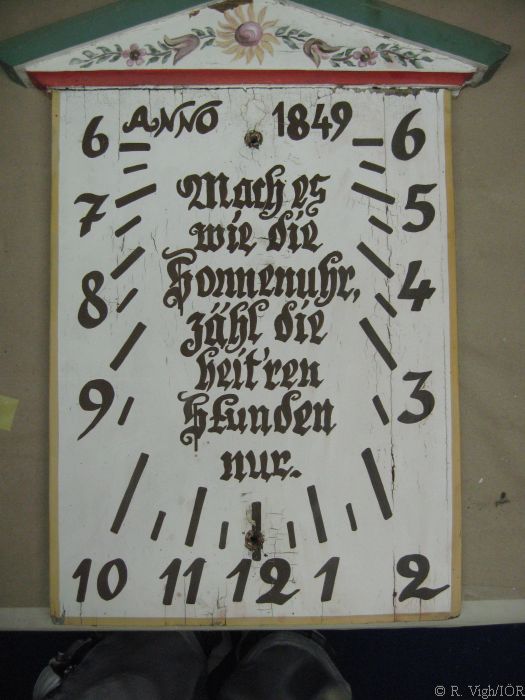 ANNO 1849
6 6
Mach es
wie die
Sonnenuhr,
zähl die
heit'ren
Stunden
nur.
7 5
8 4
9 3
10 11 12 1 2
© R. Vigh/IÖR